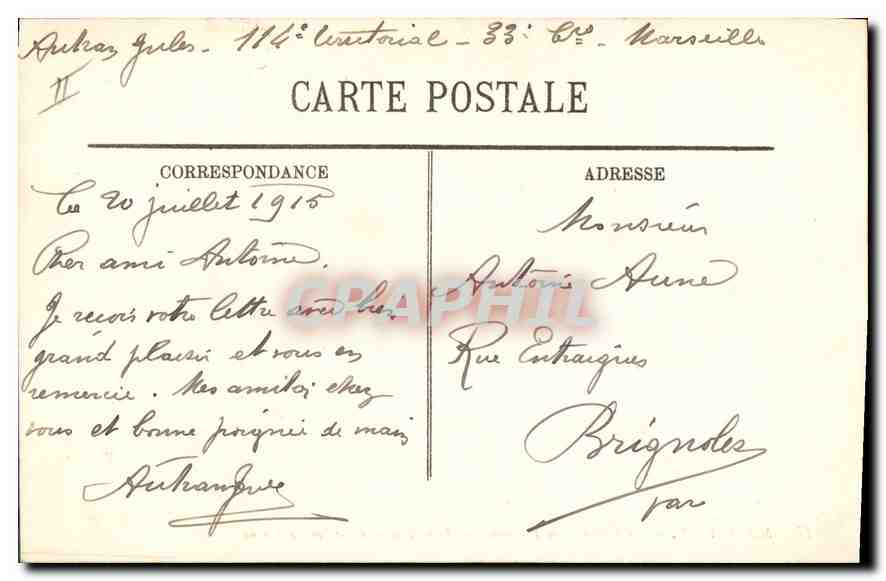 Autran Jules - 114e territorial - 33e Cie - Marseille
II
CARTE POSTALE
CORRESPONDANCE
Le 20 juillet 1915
Cher ami Antoine.
Je reçois votre lettre avec bien
grand plaisir et vous en
remercie. Mes amitiés chez
vous et bonne poignée de main
Autran Jules
ADRESSE
Monsieur
Antoine Aune
Rue Entraigues
Brignoles
Var
CPAPHIL